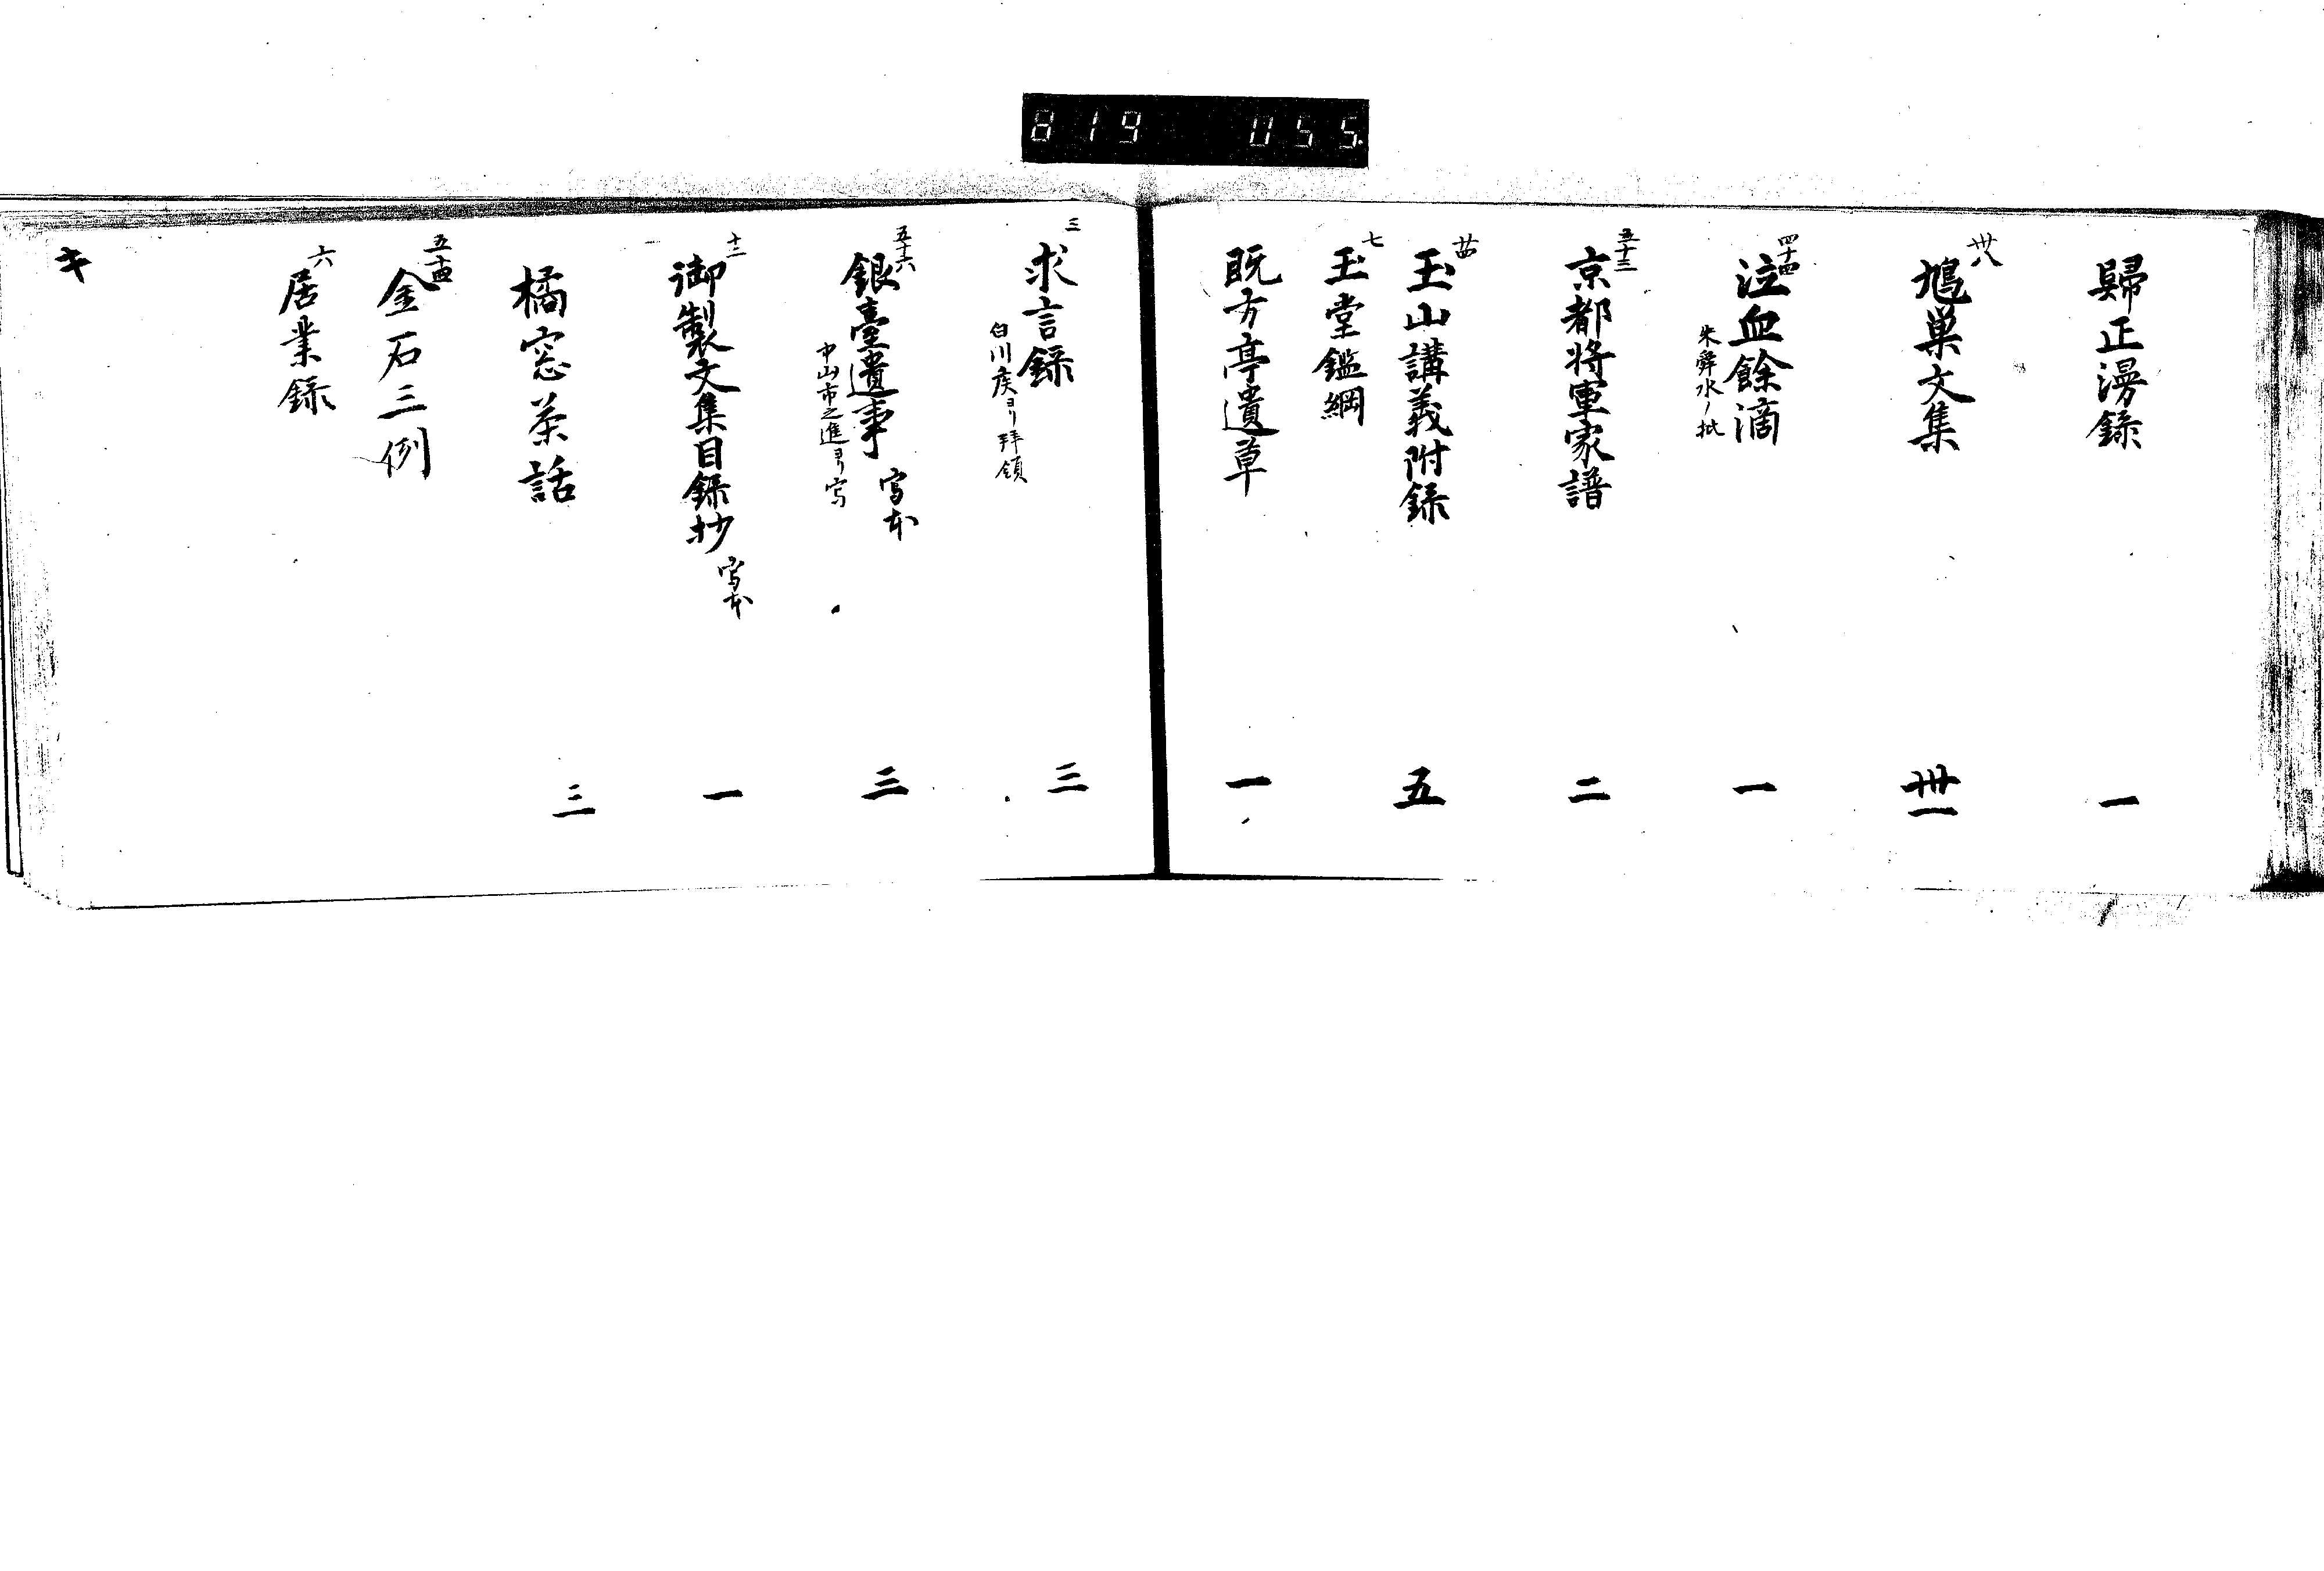 819 055.
歸正漫錄 一
卅八 鳩巣文集 卅一
四十四 泣血餘滴 一
朱舜水ノ
五十三 京都将軍家譜 二
廿四 玉山講義附録 五
七 玉堂鑑綱
既方亭遺草 一
三 求言録 三
白川疾ヨリ拝領
五十六 銀臺遺事 写本 三
中山市之進ヨリ写
十二 御製文集目録抄 写本 一
橘窓茶話 三
五十四 金石三例
六 居業録
キ